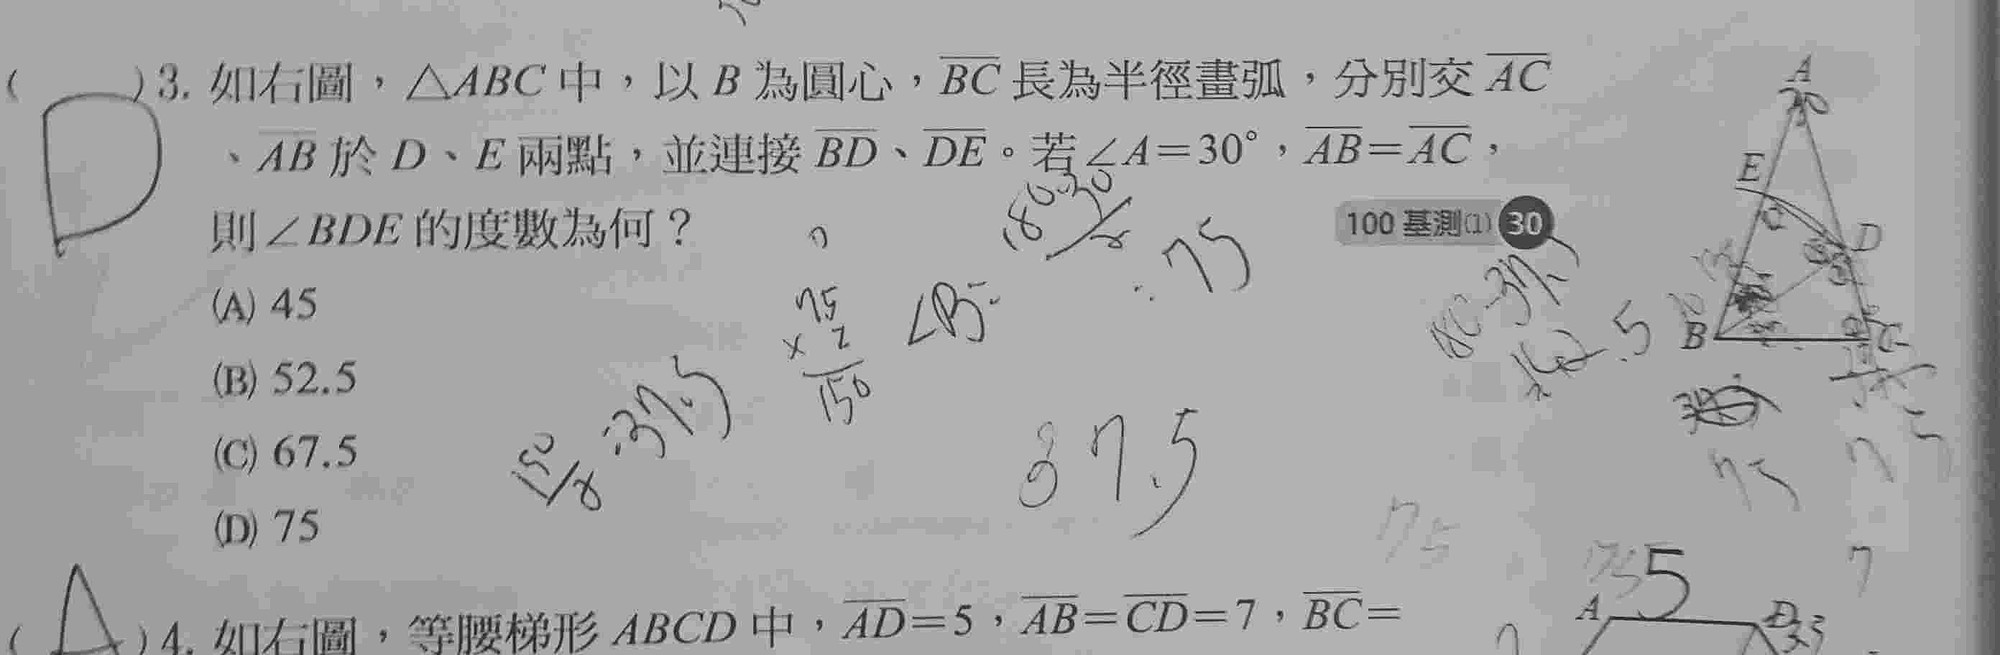 ( D )3. 如右圖，△ABC 中，以 B 為圓心，BC 長為半徑畫弧，分別交 AC
、AB 於 D、E 兩點，並連接 BD、DE。若∠A=30°，AB=AC，
則∠BDE 的度數為何？
100 基測(1) 30
(A) 45
(B) 52.5
(C) 67.5
(D) 75
180-30/2
=75
∠B=
75
×2
150
150/
=37.5
37.5
75
A
E
D
B
C
75
( A )4. 如右圖，等腰梯形 ABCD 中，AD=5，AB=CD=7，BC=
A
5
D